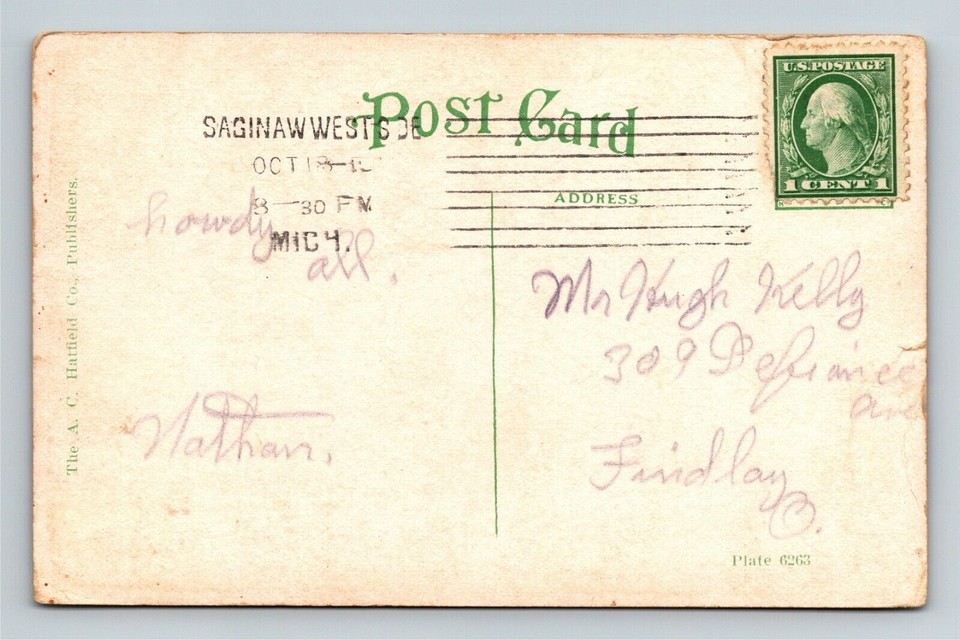 Post Card
SAGINAW WEST SIDE
OCT 18
8 30 PM
MICH.
U.S. POSTAGE
1 CENT 1
ADDRESS
howdy
all.
Nathan.
Mr Hugh Kelly
309 Defiance
ave
Findlay
O.
The A. C. Hatfield Co., Publishers.
Plate 6263